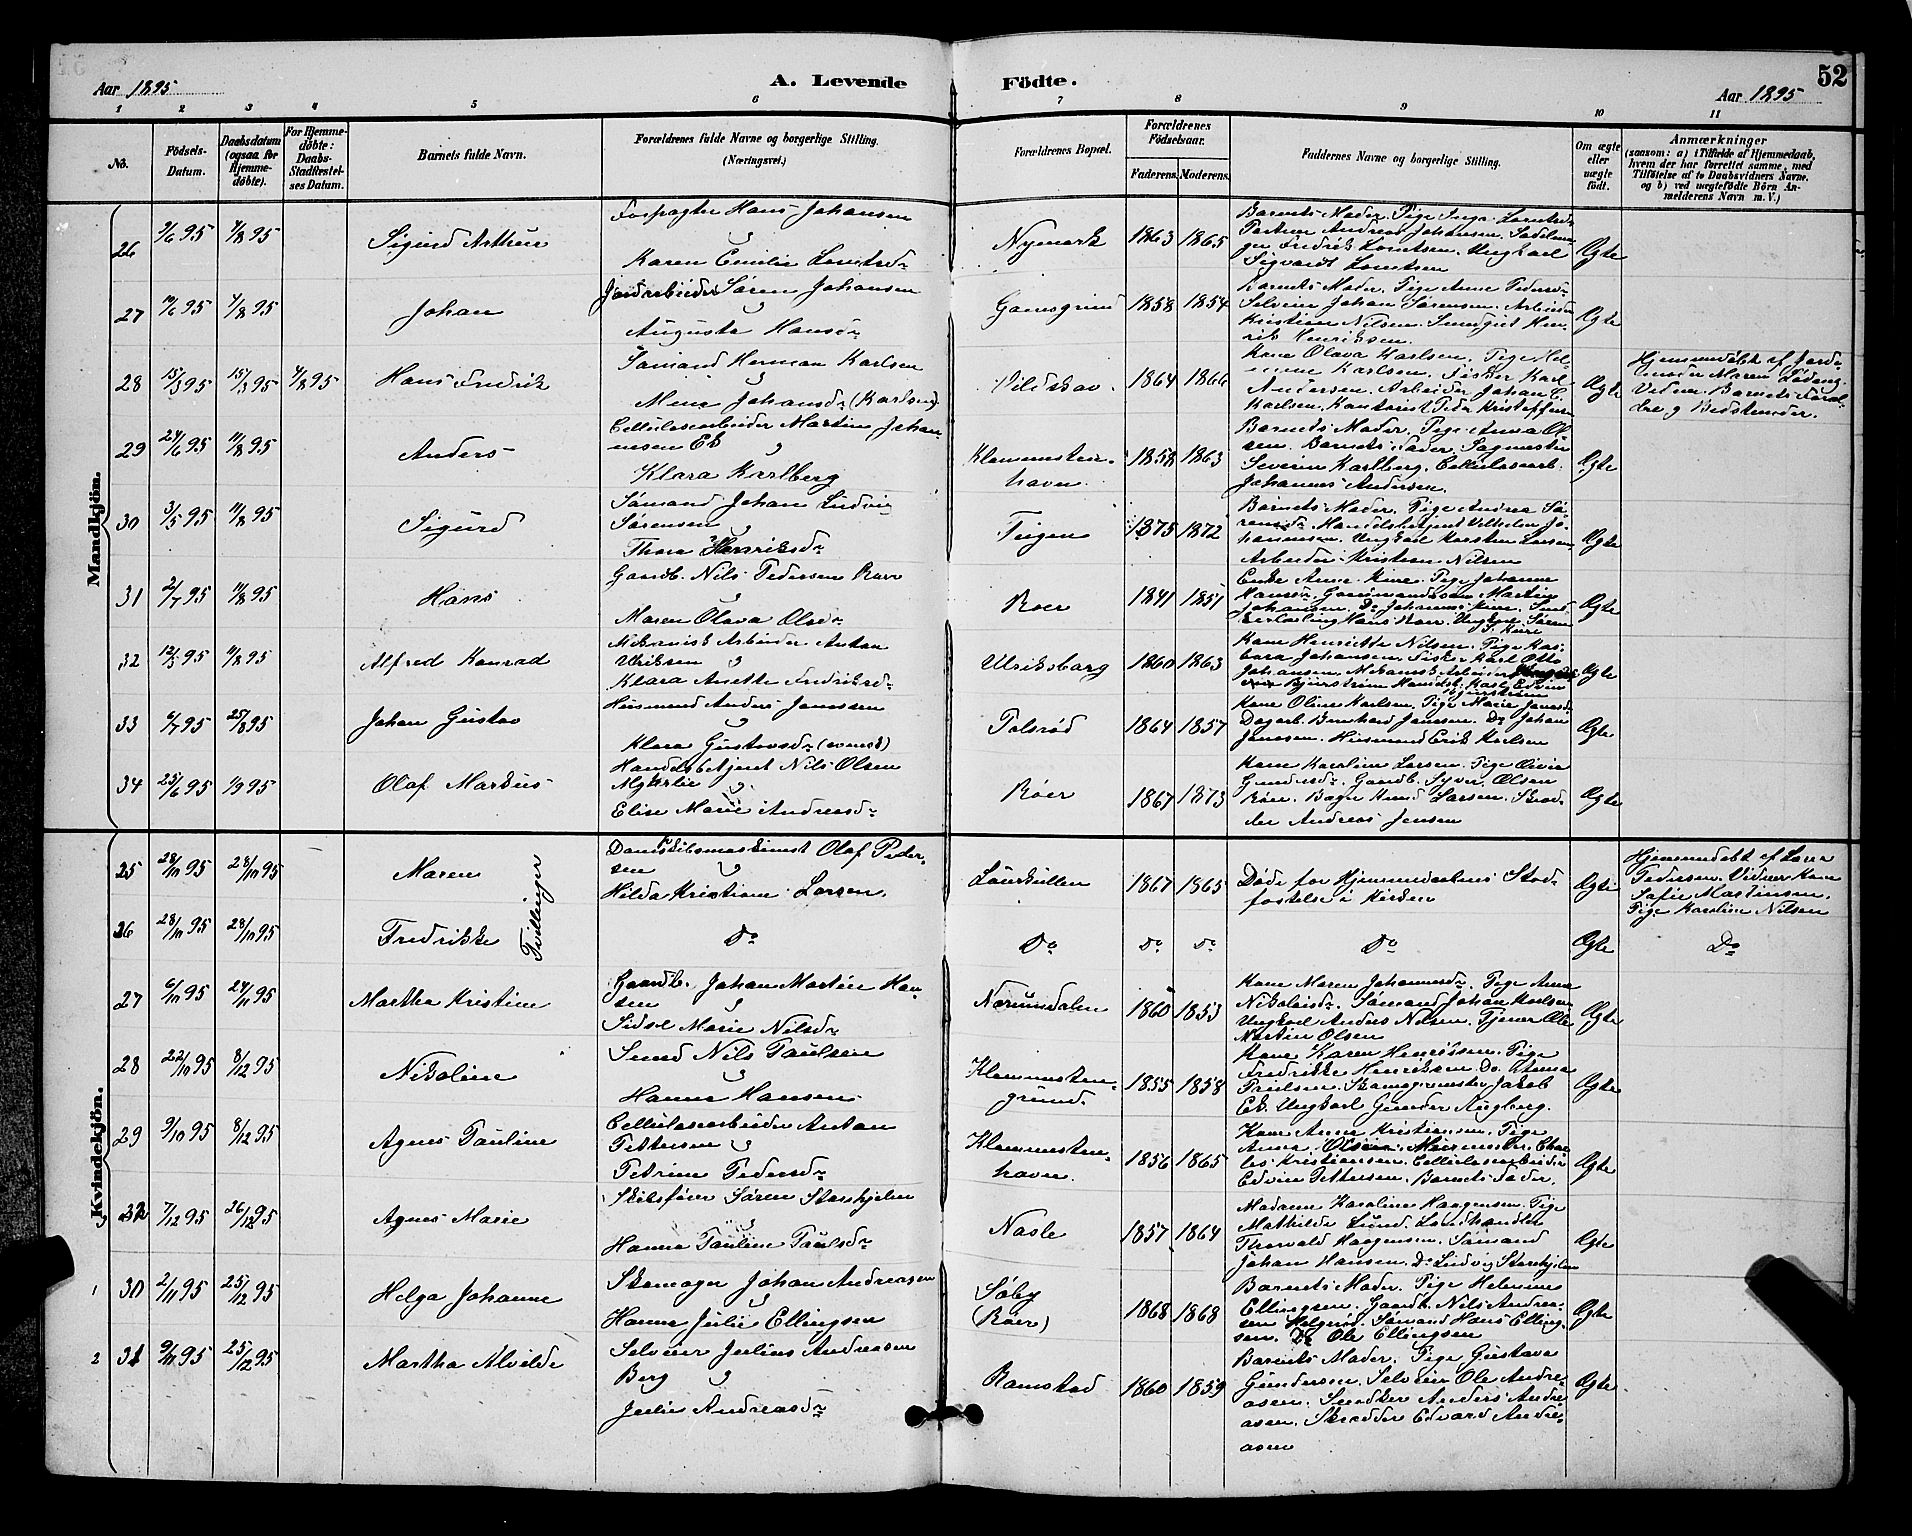 52
Aar 1895
A. Levende
Födte.
Aar 1895
1 2 3 4 5 6 7 8 9 10 11
No.
Födsels-Datum.
Daabsdatum (ogsaa for Hjemme-döbte).
For Hjemme-döbte: Daabs-Stadfæstel-ses Datum.
Barnets fulde Navn.
Forældrenes fulde Navne og borgerlige Stilling. (Næringsvei.)
Forældrenes Bopæl.
Forældrenes Födselsaar.
Faderens. Moderens.
Faddernes Navne og borgerlige Stilling.
Om ægte eller uægte födt.
Anmærkninger
(saasom: a) i Tilfælde af Hjemmedaab, hvem der har forrettet samme, med Tilföielse af to Daabsvidners Navne, og b) ved uægtefödte Börn An-melderens Navn m. V.)
Mandkjön.
26 9/6 95 4/8 95 Sigurd Arthur
Forpagter Hans Johansen
Karen Emilie Lorntsdr
Nymark 1863 1865
Barnets Moder. Pige Inga Lorntsdr
Partner Andreas Johansen. Sadelma-
ger Fredrik Lorntsen. Ungkarl
Sigvardt Lorntsen
Ægte
27 10/6 95 4/8 95 Johan
Jordarbeider Søren Johansen
Augusta Hansdr
1858 1854
Barnets Moder. Pige Anne Pedersdr
Selveier Johan Sørensen. Arbeider
Kristian Nilsen. Smedgut Hen-
rik Henriksen.
Ægte
28 15/3 95 15/3 95 4/8 95 Hans Fredrik
Sømand Herman Karlsen
Mina Johansdr (Karlsen)
Vildskov 1864 1866
Kone Olava Karlsen. Pige Hel-
mine Karlsen. Fisker Karl
Andersen. Arbeider Johan E.
Karlsen. Kontorist Peder Kristoffersen
Ægte
Hjemmedøbt af Jorde-
moder Maren Lødeng.
Vidner Barnets Foræl-
dre og Bedstemoder.
29 24/6 95 11/8 95 Anders
Cellulosearbeider Martin Johan-
nesen Ek
Klara Karlberg
Klemmetsen-
havn. 1858 1863
Barnets Moder. Pige Anna Ol-
sen. Barnets Fader. Sagmester
Severin Karlberg. Cellulosearb.
Johannes Andersen.
Ægte
30 3/5 95 11/8 95 Sigurd
Sømand Johan Ludvig
Sørensen
Thora Henriksdr
1875 1872
Barnets Moder. Pige Andrea Sø-
rensdr. Handelsbetjent Vilhelm Jo-
hannesen. Ungkarl Karsten Larsen
Arbeider Kristian Nilsen
Ægte
31 2/7 95 11/8 95 Hans
Gaardb. Nils Pedersen Roer
Maren Olava Olsdr
Roer 1841 1851
Enke Anne Kure. Pige Johanne
Hansdr. Gaardmandssøn Martin
Johansen. Do Johannes Kure. Smed
Hans Roer. Ungkarl Søren
P. Kure
Ægte
32 12/5 95 11/8 95 Alfred Konrad
Mekanisk Arbeider Anton
Ulriksen
Klara Anette Fredriksdr
Ulriksborg 1860 1863
Kone Henriette Nilsen. Pige Kas-
para Johansen. Fisker Karl Otto
Johansen. Mekanisk Arbeider
Bjurstrøm Handelsb. Karl Edvin
Bjurstrøm
Ægte
33 6/7 95 25/8 95 Johan Gustav
Husmand Anders Janessen
Klara Gustavsdr (svensk)
Tolsrød 1864 1857
Kone Oline Karlsen. Pige Marie Janesdr
Dagarb. Bernhard Janesen. Do Johan
Janesen. Husmand Erik Karlsen
Ægte
34 25/6 95 1/9 95 Olaf Markus
Handelsbetjent Nils Olsen
Elise Marie Andreasdr
Röer 1867 1873
Kone Karoline Larsen. Pige Olivia
Gundersdr. Gaardb. Syver Olsen
Röer. Bager Knud Larsen. Skræd-
der Andreas Jensen
Ægte
Kvindekjön.
25 28/10 95 28/10 95 Maren
Tvillinger
Dampskibsmaskinist Olaf Peder-
sen
Hilda Kristiane Larsen.
Laurkullen 1867 1865
Døde før Hjemmedaabens Stad-
fæstelse i Kirken
Ægte
Hjemmedøbt af Lava
Pedersen. Vidner Kone
Sofie Martinsen.
Pige Karoline Nilsen
26 28/10 95 28/10 95 Fredrikke
Do Do Do Do Do Ægte Do
27 6/10 95 24/11 95 Martha Kristine
Gaardb. Johan Martin Han-
sen
Sidsel Marie Nilsdr
Nordmundalen 1860 1853
Kone Maren Johannesdr. Pige Anna
Nikolaisdr. Sømand Johan Karlsen
Ungkarl Anders Nilsen. Tjener Ole
Martin Olsen
Ægte
28 22/10 95 8/12 95 Nikoline
Smed Nils Paulsen
Hanna Hansen.
Klemmetsen-
grund. 1855 1858
Kone Karen Henriksen. Pige
Fredrikke Henriksen. Do Anna
Paulsen. Skomagermester Jakob
Ek. Ungkarl Gunder Augberg.
Ægte
29 9/10 95 8/12 95 Agnes Pauline
Cellulosearbeider Anton
Pettersen
Petrine Pedersdr
Klemmetsen-
havn. 1856 1865
Kone Anne Kristiansen. Pige
Anna Olsen. Murmester Char-
les Kristiansen. Cellulosearbeider
Edvin Pettersen. Barnets Fader.
Ægte
3 32 7/12 95 26/12 95 Agnes Marie
Skibsfører Søren Stenhjelm
Hanna Pauline Paulsdr
Nasle 1857 1864
Madame Karoline Haagensen. Pige
Mathilde Lund. Landhandler
Thorvald Haagensen. Sømand
Johan Hansen. Do Ludvig Stenhjelm
Ægte
1 30 2/11 95 25/12 95 Helga Johanne
Skomager Johan Andreasen
Hanna Julie Ellingsen
Søby
(Röer) 1868 1868
Barnets Moder. Pige Helmine
Ellingsen. Gaardb. Nils Andrea-
sen Helgerød. Sømand Hans Elling-
sen. Do Ole Ellingsen
Ægte
2 31 9/11 95 25/12 95 Martha Alvilde
Selveier Julius Andreasen
Berg
Julie Andreasdr
Ramstad 1860 1859
Barnets Moder. Pige Gustava
Gundersen. Selveier Ole Andre-
asen. Snedker Anders Andre-
asen. Skrædder Edvard Andre-
asen
Ægte